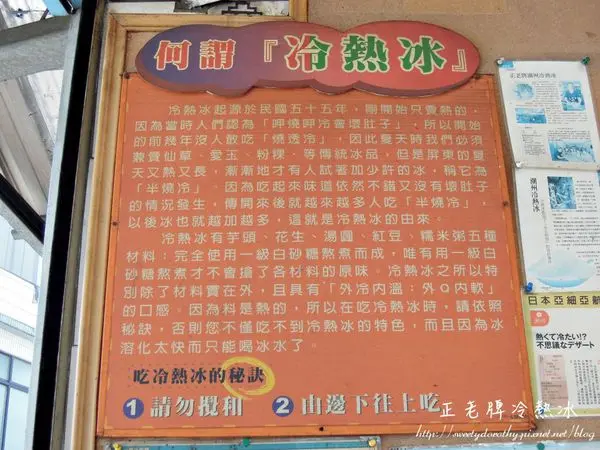 何謂『冷熱冰』
冷熱冰起源於民國五十五年，剛開始只賣熱的，
因為當時人們認為「呷燒呷冷會壞肚子」，所以開始
的前幾年沒人敢吃「燒透冷」，因此夏天時我們必須
兼賣仙草、愛玉、粉粿，等傳統冰品，但是屏東的夏
天又熱又長，漸漸地才有人試著加少許的冰，稱它為
「半燒冷」。因為吃起來味道依然不錯又沒有壞肚子
的情況發生，傳開來後就越來越多人吃「半燒冷」，
以後冰也就越加越多，這就是冷熱冰的由來。
冷熱冰有芋頭、花生、湯圓、紅豆、糯米粥五種
材料：完全使用一級白砂糖熬煮而成，唯有用一級白
砂糖熬煮才不會搶了各材料的原味。冷熱冰之所以特
別除了材料實在外，且具有「外冷內溫：外Q內軟」
的口感。因為料是熱的，所以在吃冷熱冰時，請依照
秘訣，否則您不僅吃不到冷熱冰的特色，而且因為冰
溶化太快而只能喝冰水了。
吃冷熱冰的秘訣
1 請勿攪和 2 由邊下往上吃
正老牌潮州冷熱冰
潮州冷熱冰
日本亞細亞航
熱くて冷たい!?
不思議なデザート
正老牌冷熱冰
http://sweetydorothy.pixnet.net/blog